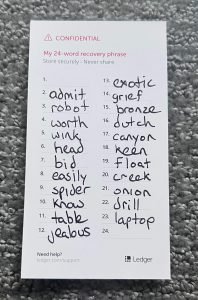 CONFIDENTIAL
My 24-word recovery phrase
Store securely - Never share
1.
2. admit
3. robot
4. worth
5. wink
6. head
7. bid
8. easily
9. spider
10. know
11. table
12. jeabus
13. exotic
14. grief
15. bronze
16. dutch
17. canyon
18. keen
19. float
20. creek
21. onion
22. drill
23. laptop
24.
Need help?
ledger.com/support
Ledger